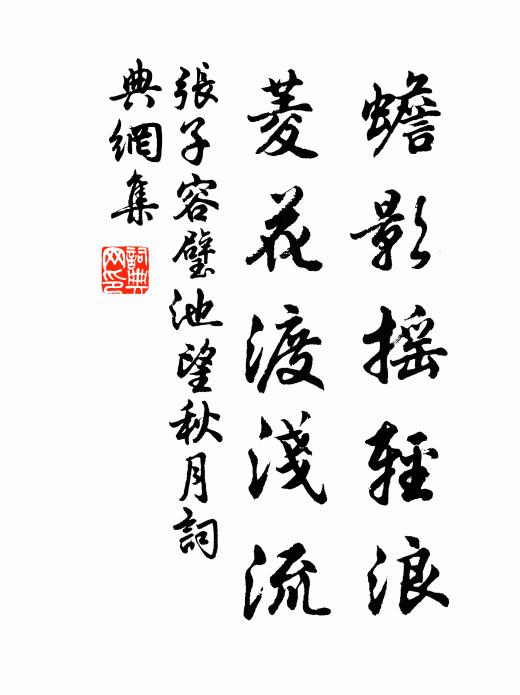 蟾影摇輕浪
菱花渡淺流
張子容璧池望秋月詞
典網集
詞典網印